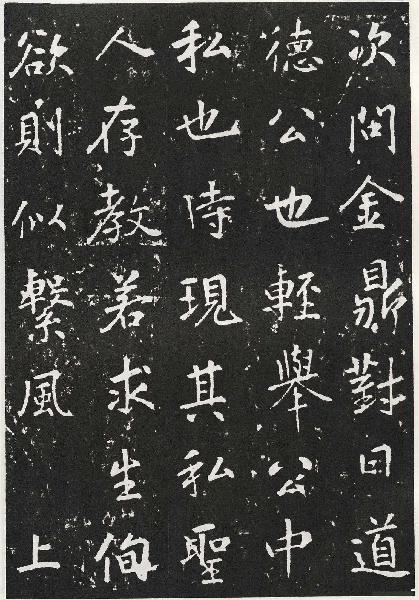 次問金鼎對曰道
德公也輕舉公中
私也時現其私聖
人存教若求生徇
欲則似繫風 上